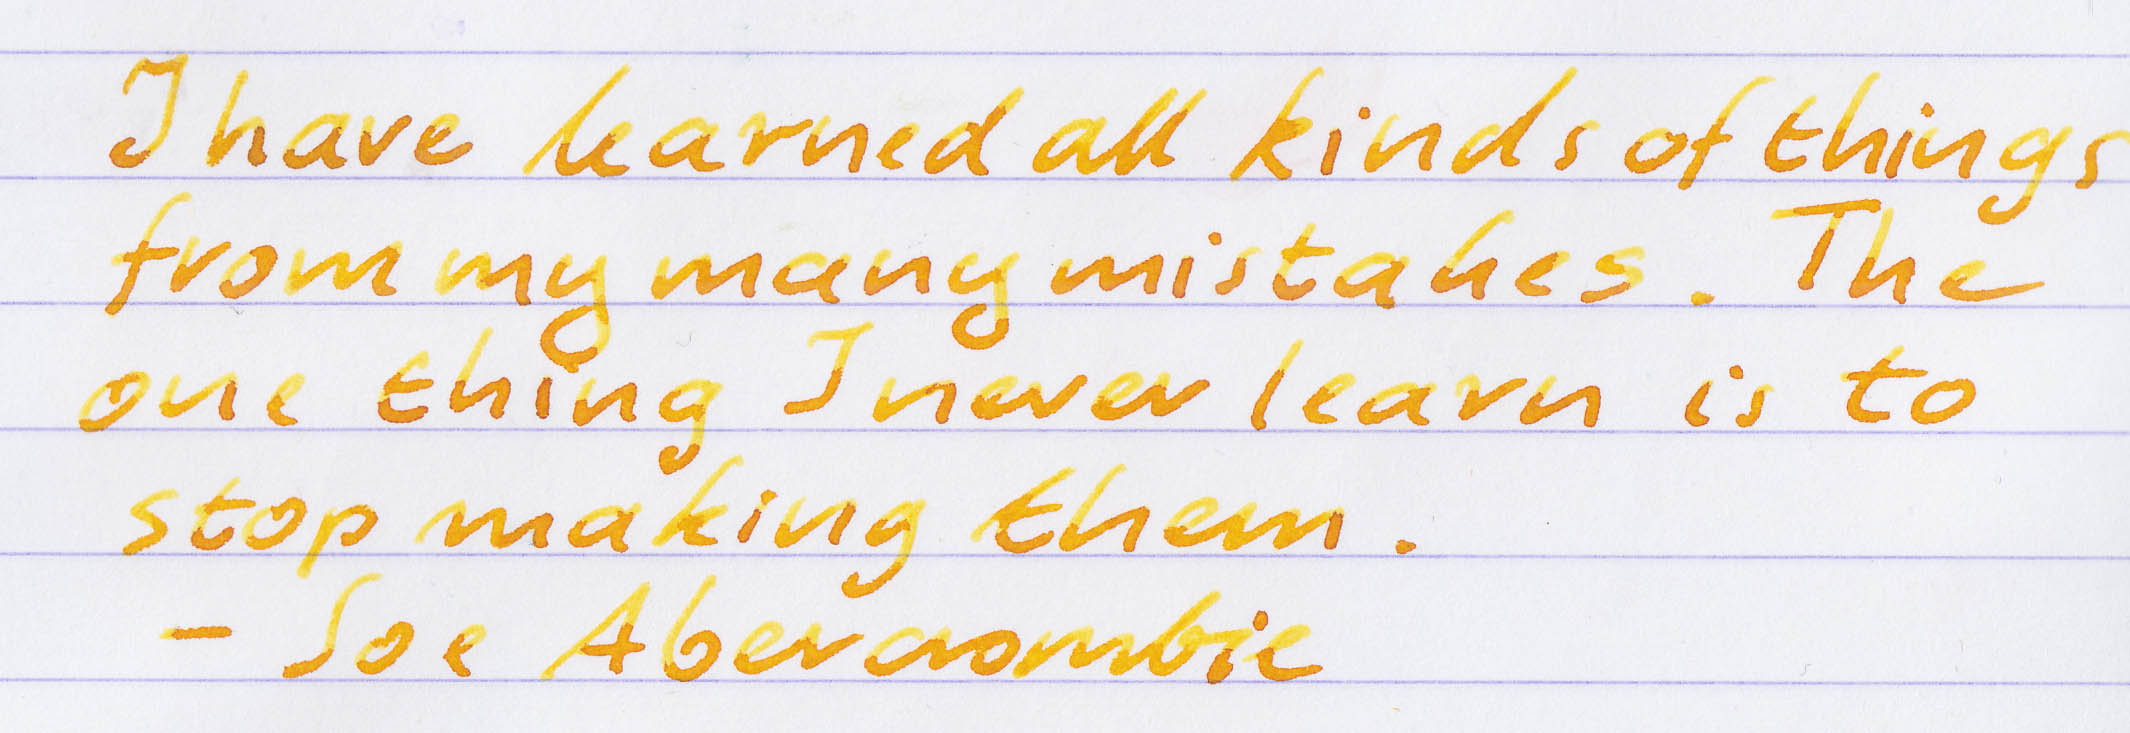 I have learned all kinds of things
from my many mistakes. The
one thing I never learn is to
stop making them.
- Joe Abercrombie